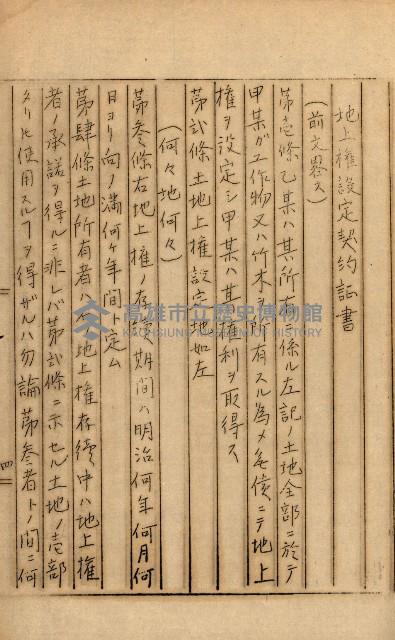 地上權設定契約証書
(前文畧ス)
第壱條乙某ハ其所有ニ係ル左記ノ土地全部ニ於テ
甲某ガ工作物又ハ竹木ヲ所有スル為メ無償ニテ地上
權ヲ設定シ甲某ハ其權利ヲ取得ス
第弍條土地上權設定地如左
(何々地何々)
第参條右地上權ノ存續期間ハ明治何年何月何
日ヨリ向ノ満何ヶ年間ト定ム
第肆條土地所有者ハ地上權存續中ハ地上權
者ノ承諾ヲ得ルニ非レバ第弍條ニ示セル土地ノ壱部
タリトモ使用スルヿヲ得ザルハ勿論第参者トノ間ニ何
四
高雄市立歷史博物館
KAOHSIUNG MUSEUM OF HISTORY